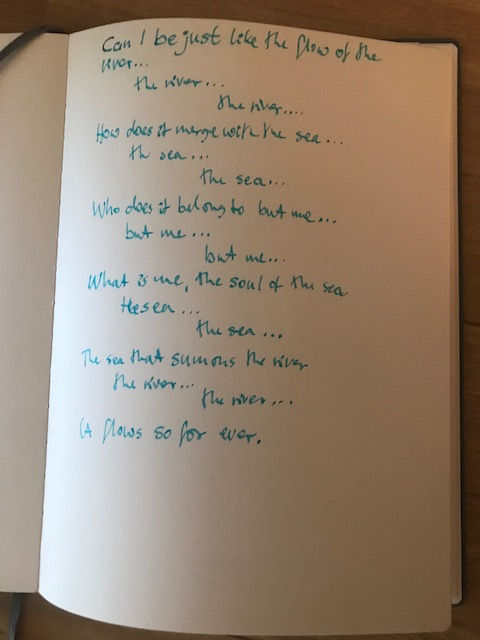 Can I be just like the flow of the
river...
the river...
the river....
How does it merge with the sea...
the sea...
the sea...
Who does it belong to but me...
but me...
but me...
What is me, the soul of the sea
the sea...
the sea...
The sea that sumons the river
the river...
the river...
It flows so for ever.